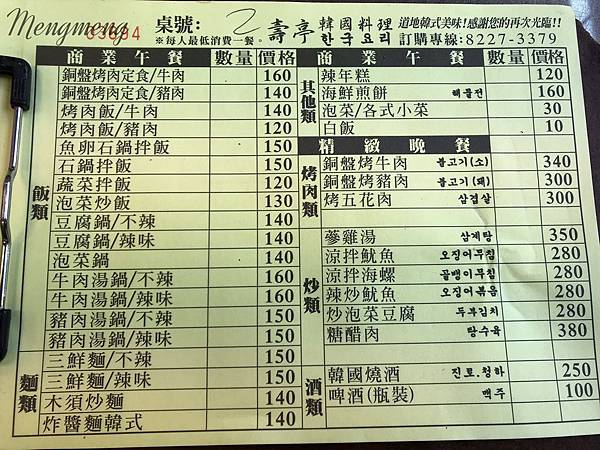 Mengmeng
桌號:
壽亭 韓國料理
道地韓式美味!感謝您的再次光臨!!
※每人最低消費一餐。
한국요리
訂購專線:8227-3379
商業午餐 數量 價格
飯類
銅盤烤肉定食/牛肉 160
銅盤烤肉定食/豬肉 140
烤肉飯/牛肉 140
烤肉飯/豬肉 120
魚卵石鍋拌飯 150
石鍋拌飯 150
蔬菜拌飯 120
泡菜炒飯 130
豆腐鍋/不辣 140
豆腐鍋/辣味 140
泡菜鍋 140
牛肉湯鍋/不辣 160
牛肉湯鍋/辣味 160
豬肉湯鍋/不辣 150
豬肉湯鍋/辣味 150
麵類
三鮮麵/不辣 150
三鮮麵/辣味 150
木須炒麵 140
炸醬麵韓式 140
商業午餐 數量 價格
其他類
辣年糕 120
海鮮煎餅 해물전 160
泡菜/各式小菜 30
白飯 10
精緻晚餐
烤肉類
銅盤烤牛肉 불고기(소) 340
銅盤烤豬肉 불고기(돼) 300
烤五花肉 삼겹살 300
炒類
蔘雞湯 삼계탕 350
涼拌魷魚 오징어무침 280
涼拌海螺 골뱅이무침 280
辣炒魷魚 오징어볶음 280
炒泡菜豆腐 두부김치 280
糖醋肉 탕수육 380
酒類
韓國燒酒 진로.청하 250
啤酒(瓶裝) 맥주 100